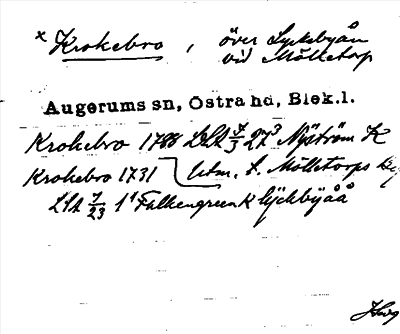 x Krokebro, över Lyckebyån
vid Mölletorp
Augerums sn, Östra hd, Blek.l.
Krokebro 1788 LSA 7/3 27³ Nyström K
Krokebro 1731 Utm. t. Mölletorps
LSA 7/23 1¹ Falkengreen K lÿckbÿåå